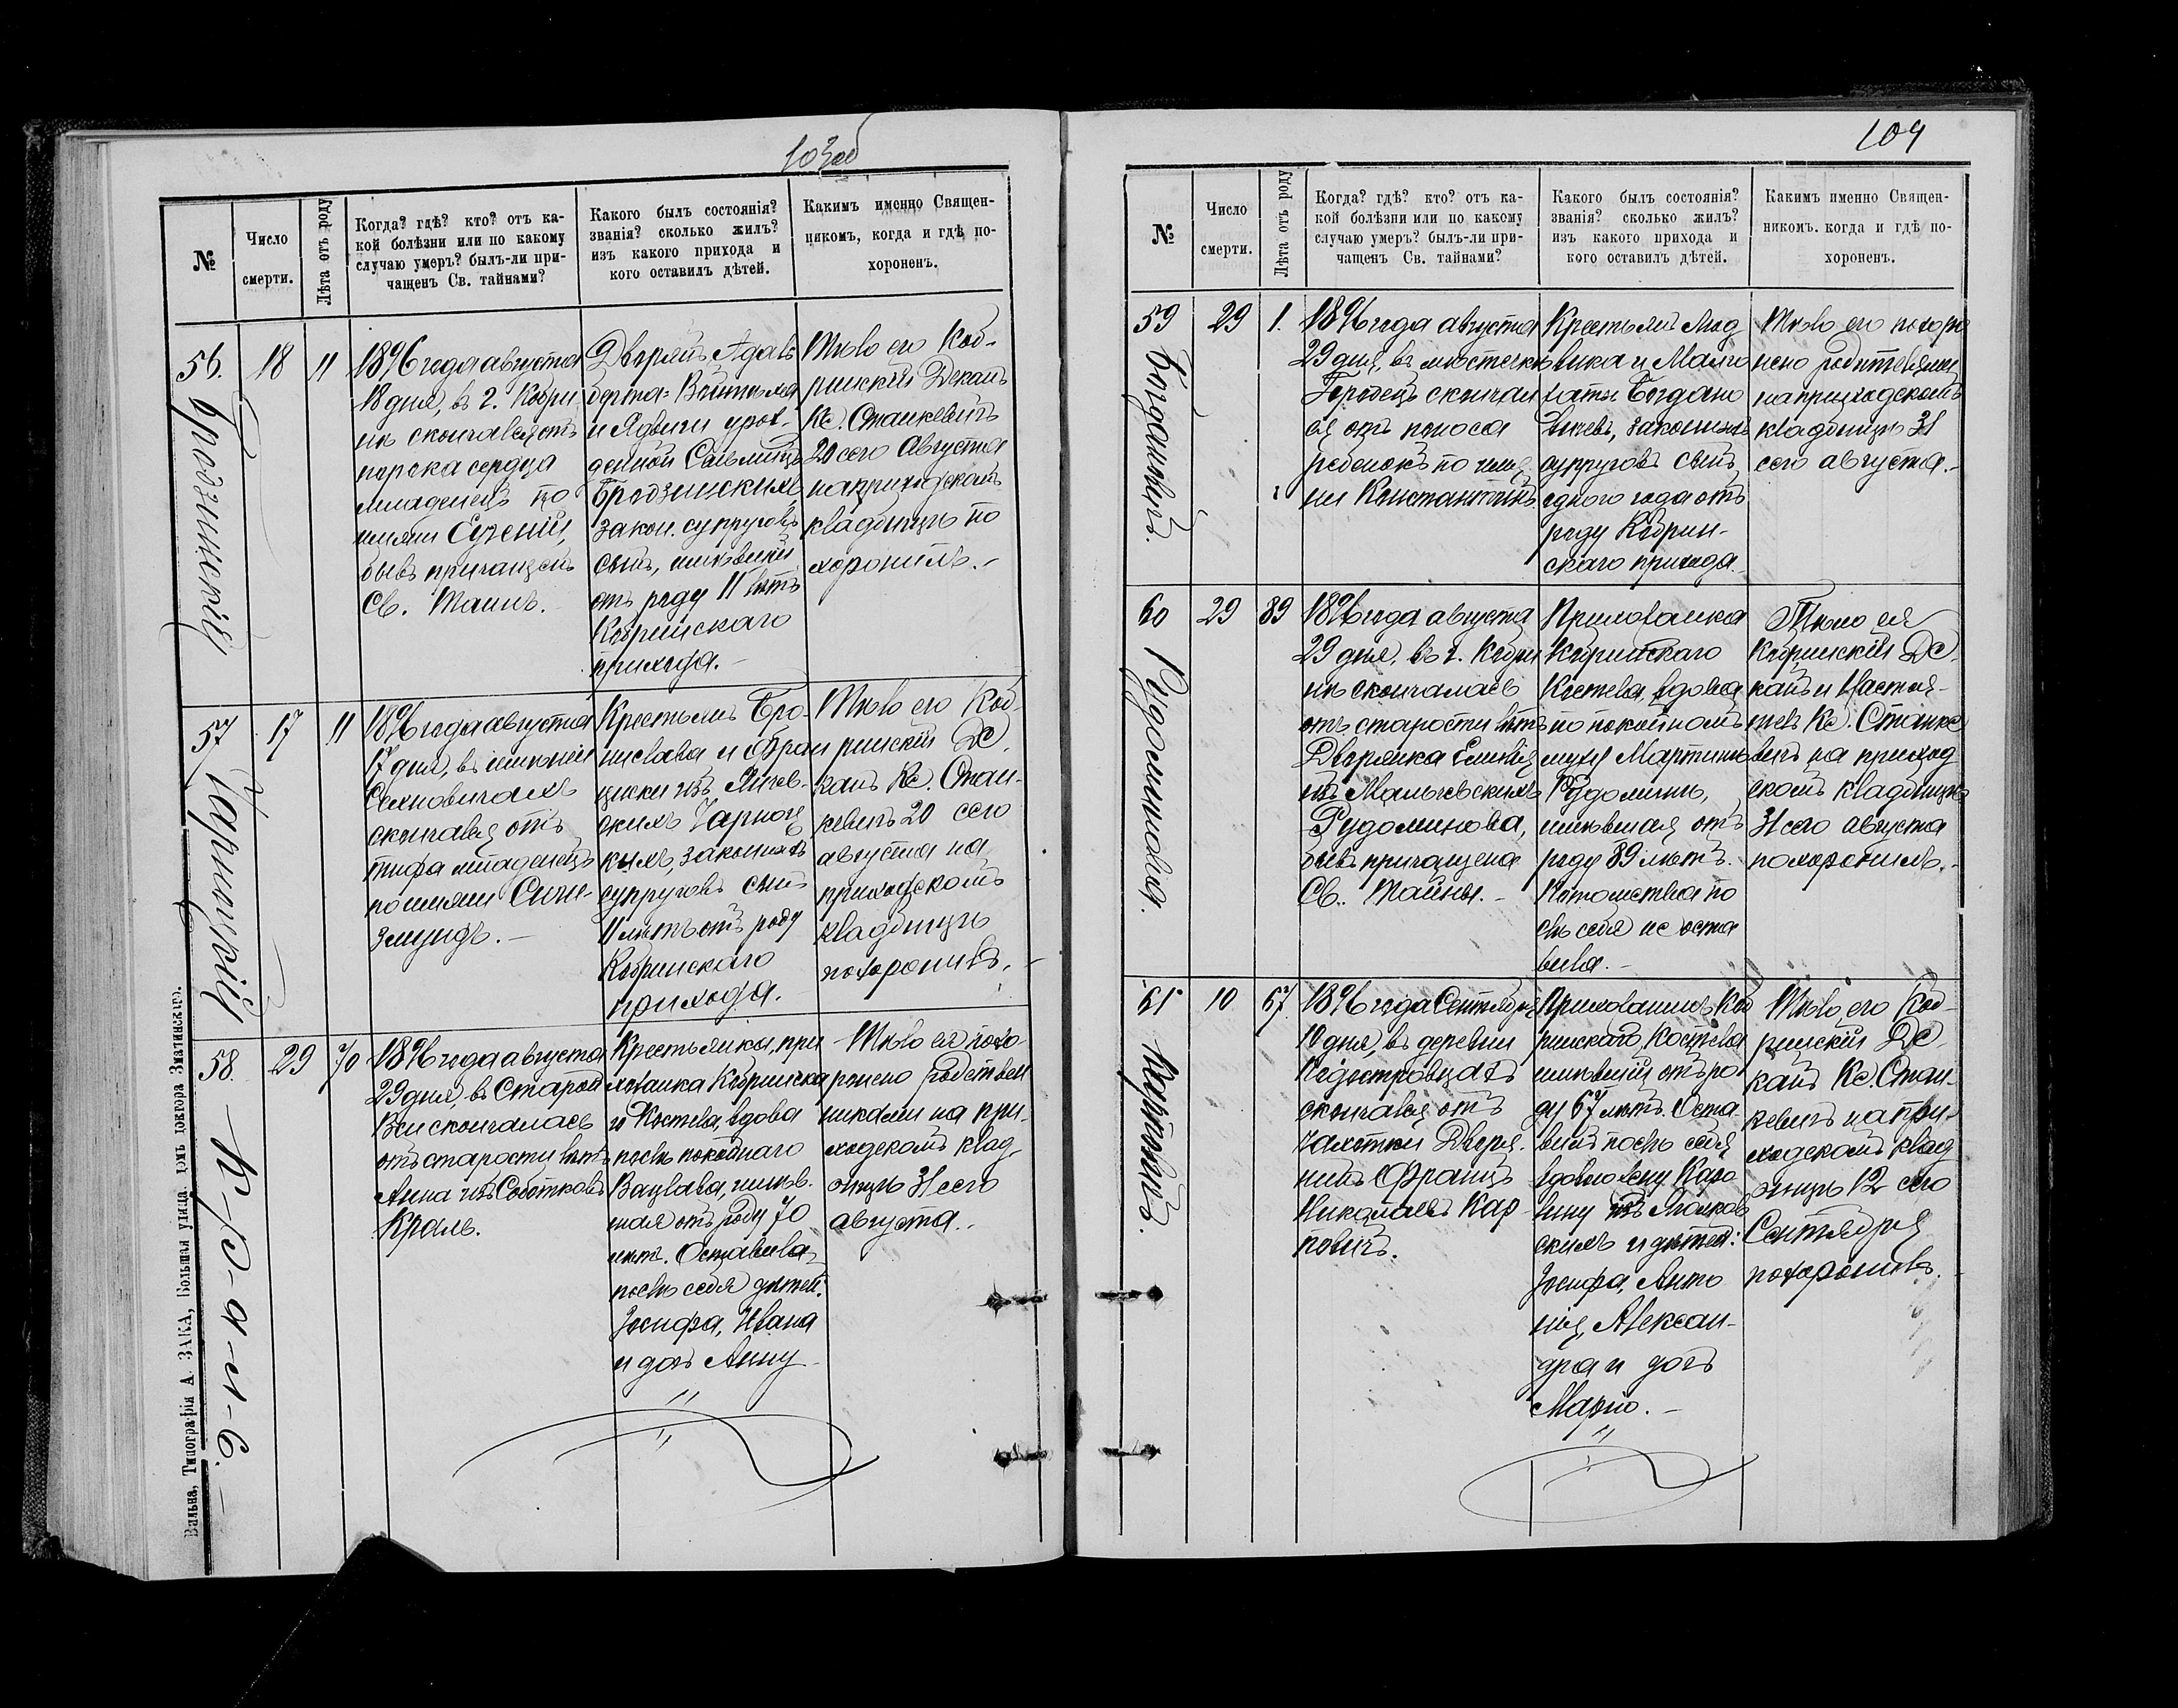 103об
№
Число
смерти.
Лѣта отъ роду
Когда? гдѣ? кто? отъ ка-
кой болѣзни или по какому
случаю умеръ? былъ-ли при-
чащенъ Св. тайнами?
Какого былъ состоянія?
званія? сколько жилъ?
изъ какого прихода и
кого оставилъ дѣтей.
Какимъ именно Священ-
никомъ, когда и гдѣ по-
хороненъ.
56.
Бродзинскій
18
11
1896 года августа
18 дня, въ г. Кобри
нѣ скончался отъ
порока сердца
младенецъ по
имяни Евгеній,
бывъ причащенъ
Св. Таинъ.
Дворянъ Адаль
берта-Войтѣха
и Ядвиги урож-
денной
Бродзинскихъ
закон. супруговъ
сынъ, имѣвшій
отъ роду 11 лѣтъ
Кобринскаго
прихода.-
Тѣло его Коб-
ринскій Деканъ
Кс. Станкевичъ
20 сего Августа
на приходскомъ
кладбищѣ по
хоронилъ.-
57
Чарноцкій
17
11
1896 года августа
17 дня, въ имѣніи
Сехновичахъ
скончался отъ
тифа младенецъ
по имяни Сиги-
змундъ.-
Крестьянъ Бро-
нислава и Фран
циски изъ
скихъ Чарноц
кихъ, законныхъ
супруговъ сынъ
11 лѣтъ отъ роду
Кобринскаго
прихода.-
Тѣло его Коб
ринскій Де
канъ Кс. Стан-
кевичъ 20 сего
августа на
приходскомъ
кладбищѣ
похоронилъ.-
58.
К-р-а-л-ь.-
29
70
1896 года августа
29 дня, въ Старой
Вси скончалась
отъ старости лѣтъ
Анна изъ Соботковъ
Краль.
Крестьянка, при
хожанка Кобринска
го Костела, вдова
послѣ покойнаго
Вацлава, имѣв-
шая отъ роду 70
лѣтъ. Оставила
послѣ себя дѣтей:
Іосифа, Ивана
и дочь Анну-
Тѣло ея похо-
ронено родствен
никами на при-
ходскомъ клад-
бищѣ 31 сего
августа.-
Вильна, Типографія А. ЗАКА, Большая улица, домъ доктора Зматинскаго.
104
№
Число
смерти.
Лѣта отъ роду
Когда? гдѣ? кто? отъ ка-
кой болѣзни или по какому
случаю умеръ? былъ-ли при-
чащенъ Св. тайнами?
Какого былъ состоянія?
званія? сколько жилъ?
изъ какого прихода и
кого оставилъ дѣтей.
Какимъ именно Священ-
никомъ. когда и гдѣ по-
хороненъ.
59
Богдановичъ.
29
1.
1896 года августа
29 дня, въ мѣстечкѣ
Городецъ скончал
ся отъ поноса
ребенокъ по имя
ни Константинъ
Крестьянъ Люд
вика и Малго
жаты Богдано
вичевъ, законныхъ
супруговъ сынъ
одного года отъ
роду Кобрин-
скаго прихода.
Тѣло его похоро
нено родителями
на приходскомъ
кладбищѣ 31
сего августа.-
60
Рудоминова.
29
89
1896 года августа
29 дня, въ г. Кобри
нѣ скончалась
отъ старости лѣтъ
Дворянка Емилія
изъ Мальчевскихъ
Рудоминова,
бывъ причащена
Св. Тайны.-
Прихожанка
Кобринскаго
Костела, вдова
по покойномъ
мужѣ Мартинѣ
Рудоминѣ,
имѣвшая отъ
роду 89 лѣтъ.
Потомства по
слѣ себя не оста
вила.-
Тѣло ея
Кобринскій Де
канъ и Настоя-
тель Кс. Станке
вичъ на приход
скомъ кладбищѣ
31 сего августа
похоронилъ.-
61
Карповичъ.
10
67
1896 года Сентября
10 дня, въ деревни
Подостровцахъ
скончался отъ
чахотки Дворя-
нинъ Францъ
Николаевъ Кар
повичъ.
Прихожанинъ Коб
ринскаго Костела
имѣвшій отъ ро
ду 67 лѣтъ. Оста-
вилъ послѣ себя
вдовою жену Каро
лину изъ
скихъ и дѣтей:
Іосифа, Анто
нія, Алексан-
дра и дочь
Марію.-
Тѣло его Коб-
ринскій Де
канъ Кс. Стан-
кевичъ на при-
ходскомъ клад
бищѣ 12 сего
Сентября
похоронилъ.